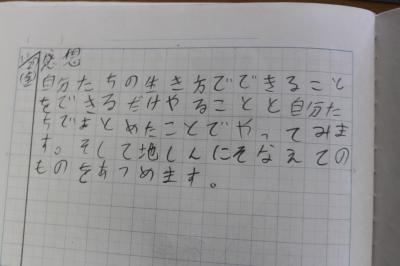 感想
自分たちの生き方でできること
をできるだけやることと自分た
ちでまとめたことでやってみま
す。そして地しんにそなえての
ものをあつめます。